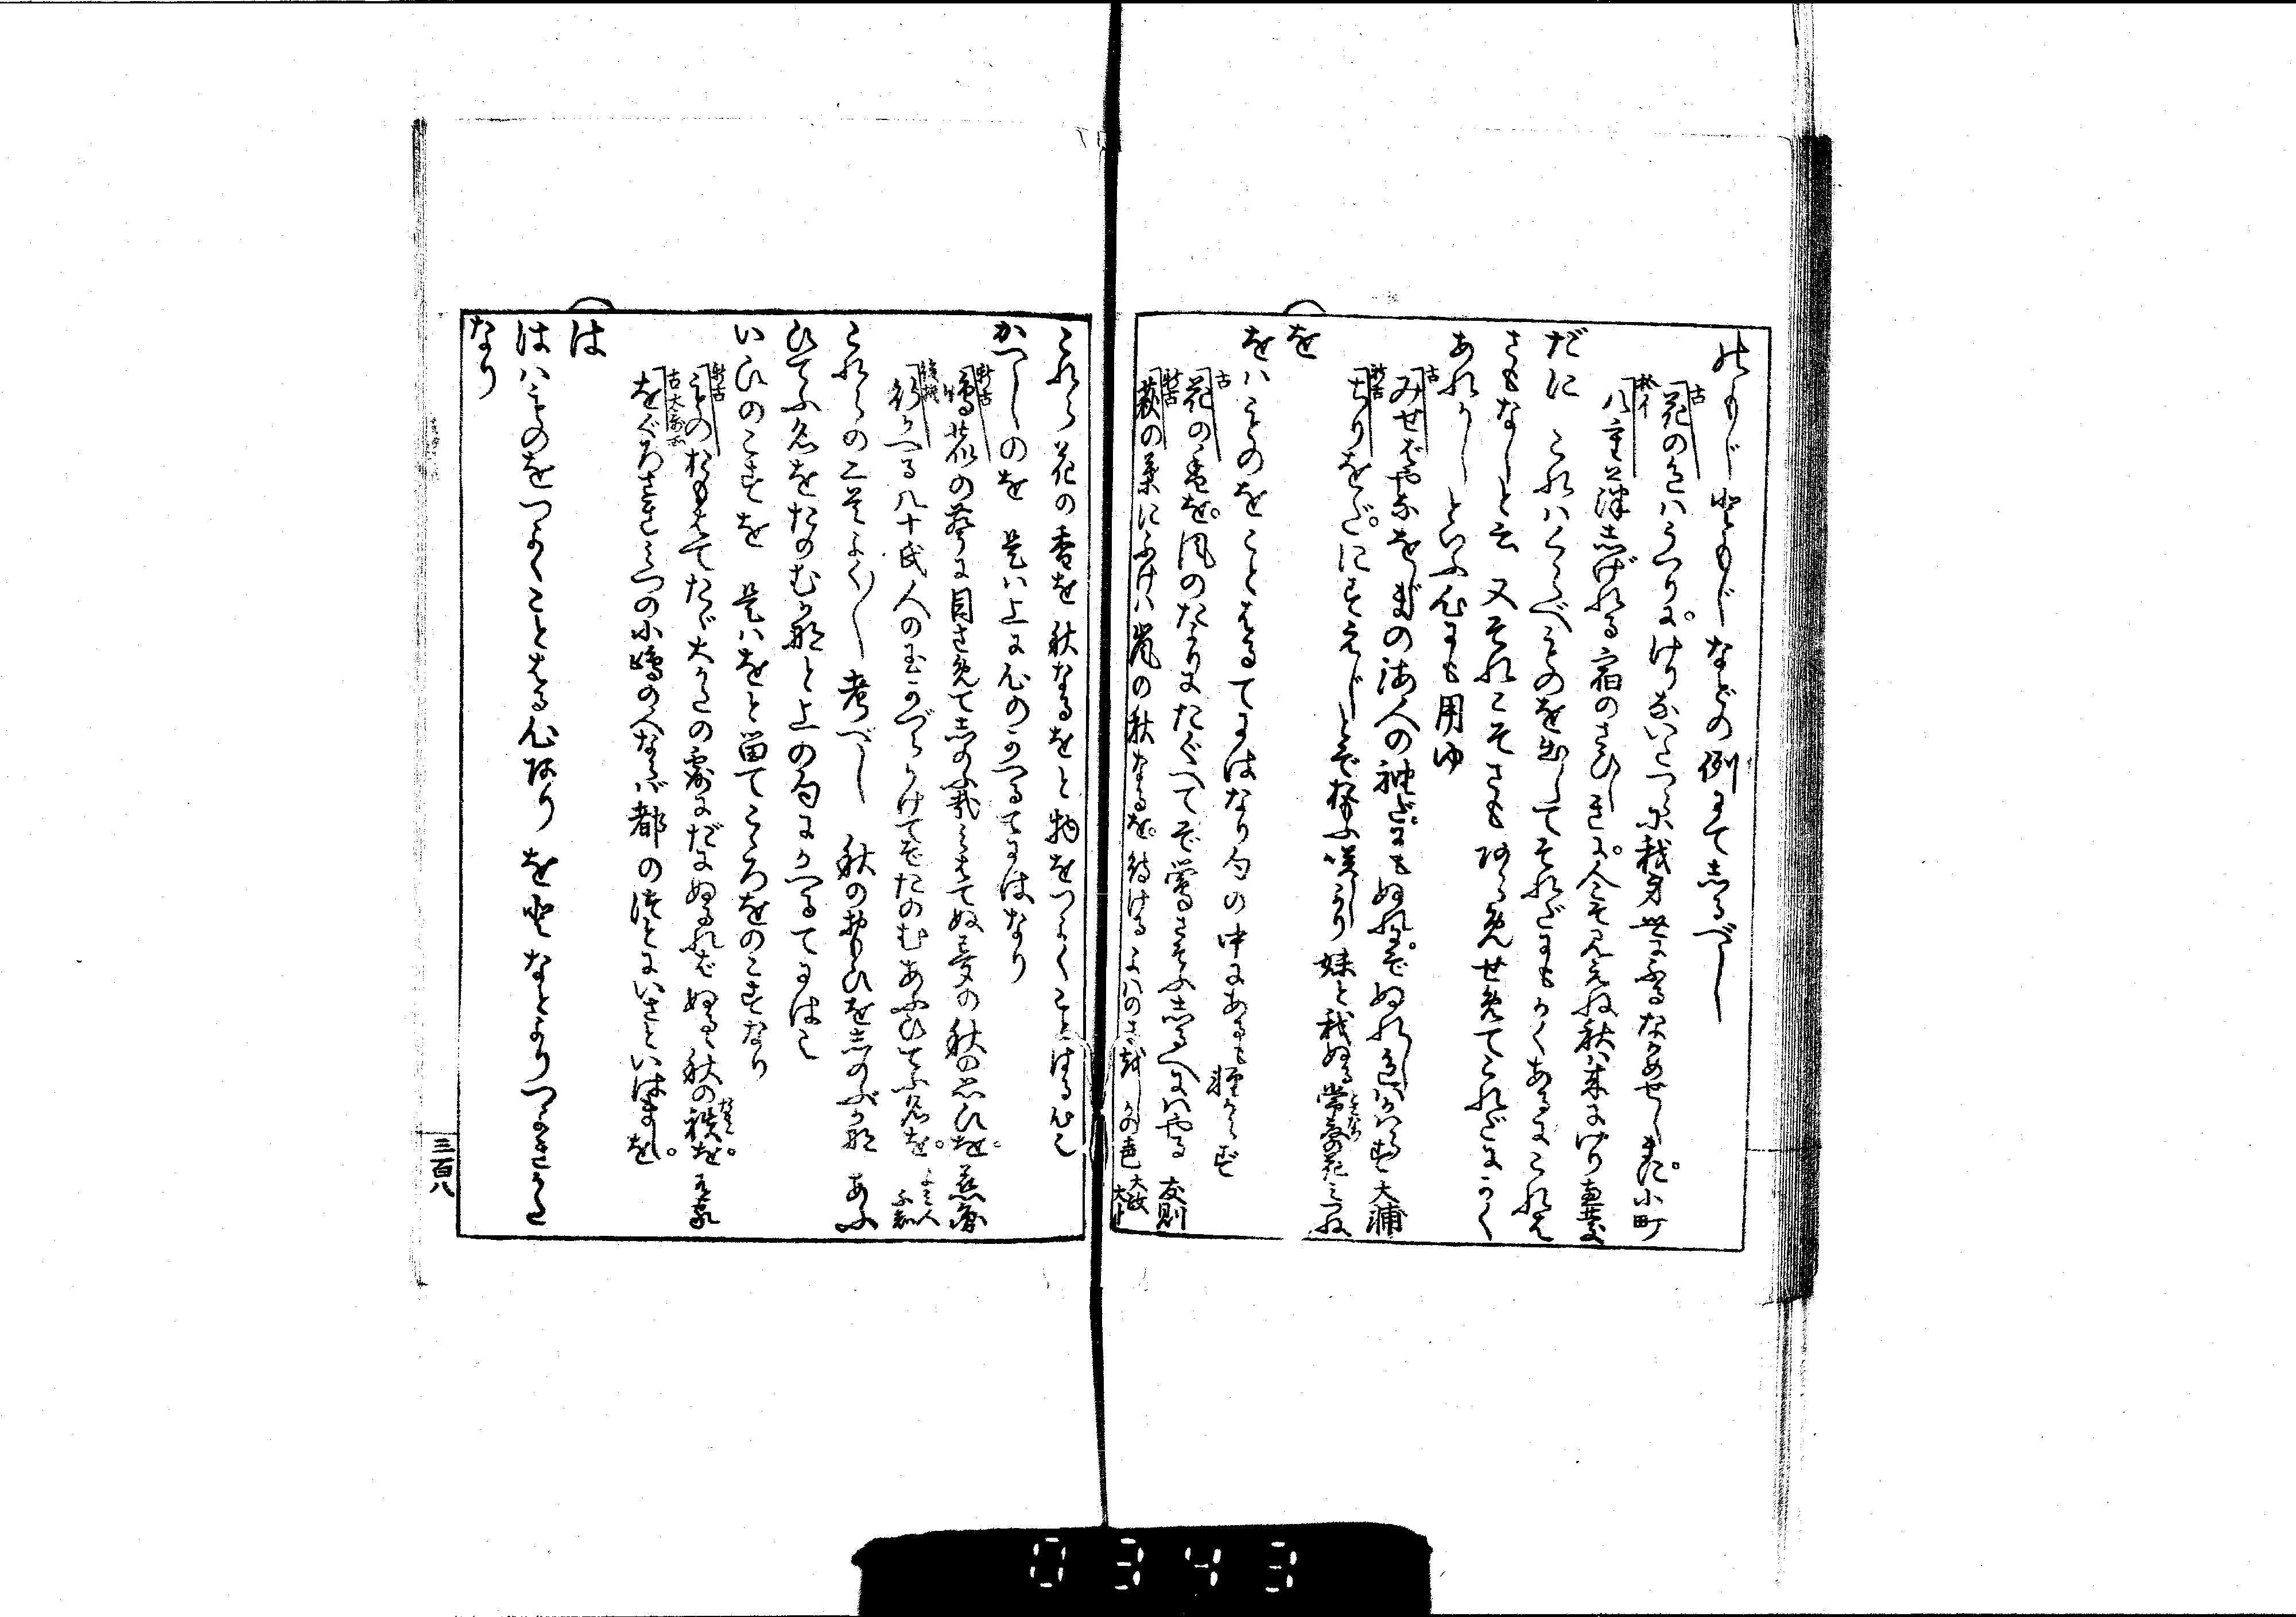 のもじともじなどの例にて志るべし
古 花の色ハうつりにけりないたつらに我身世にふるなかめせしまに 小町
拾イ 八重葎志げれる宿のさひしきに人こそ見えね秋ハ来にけり 恵慶
だに これハくらべものを出してそれだにもかくあるにこれは
さもなしと云 又それこそさもあらめせめてこれだにかく
あれかしといふ心にも用ゆ
古 みせばやなをじまの海人の袖だにもぬれにぞぬれし色ハかハらず 大浦
ちりをだにすゑじとぞおもふ咲しより妹と我ぬる常夏の花 みつね
を
をハものをことわるてにはなり句の中にあるも
古 花の香を風のたよりにたぐへてぞ鶯さそふ志るべにハやる 友則
新古 荻の葉にふけハ嵐の秋なるを待ける
これら花の香を秋なるをと物をつよくことはる心也
かへしのを 是ハ上に心のかへるてにはなり
新古 の の秋の思ひを 慈円
かへる八十氏人の玉かづらかけてぞたのむあふひてふ名を よミ人不知
これらの二首よく〳〵考べし 秋のおもひを志のぶかな あふ
ひてふ名をたのむかなと上の句にかへるてには也
いひのこすを 是ハをと留てこころをのこすなり
新古 ものおもはでたゞ大かたの露にだにぬるれバぬるゝ秋の袂を 有家
古大哥所 をぐろさきみつの小嶋の人ならバ都のつとにいざといはましを
は
はハものをつよくことわる心あり をとなとよりつよきかた
なり
三百八
0343